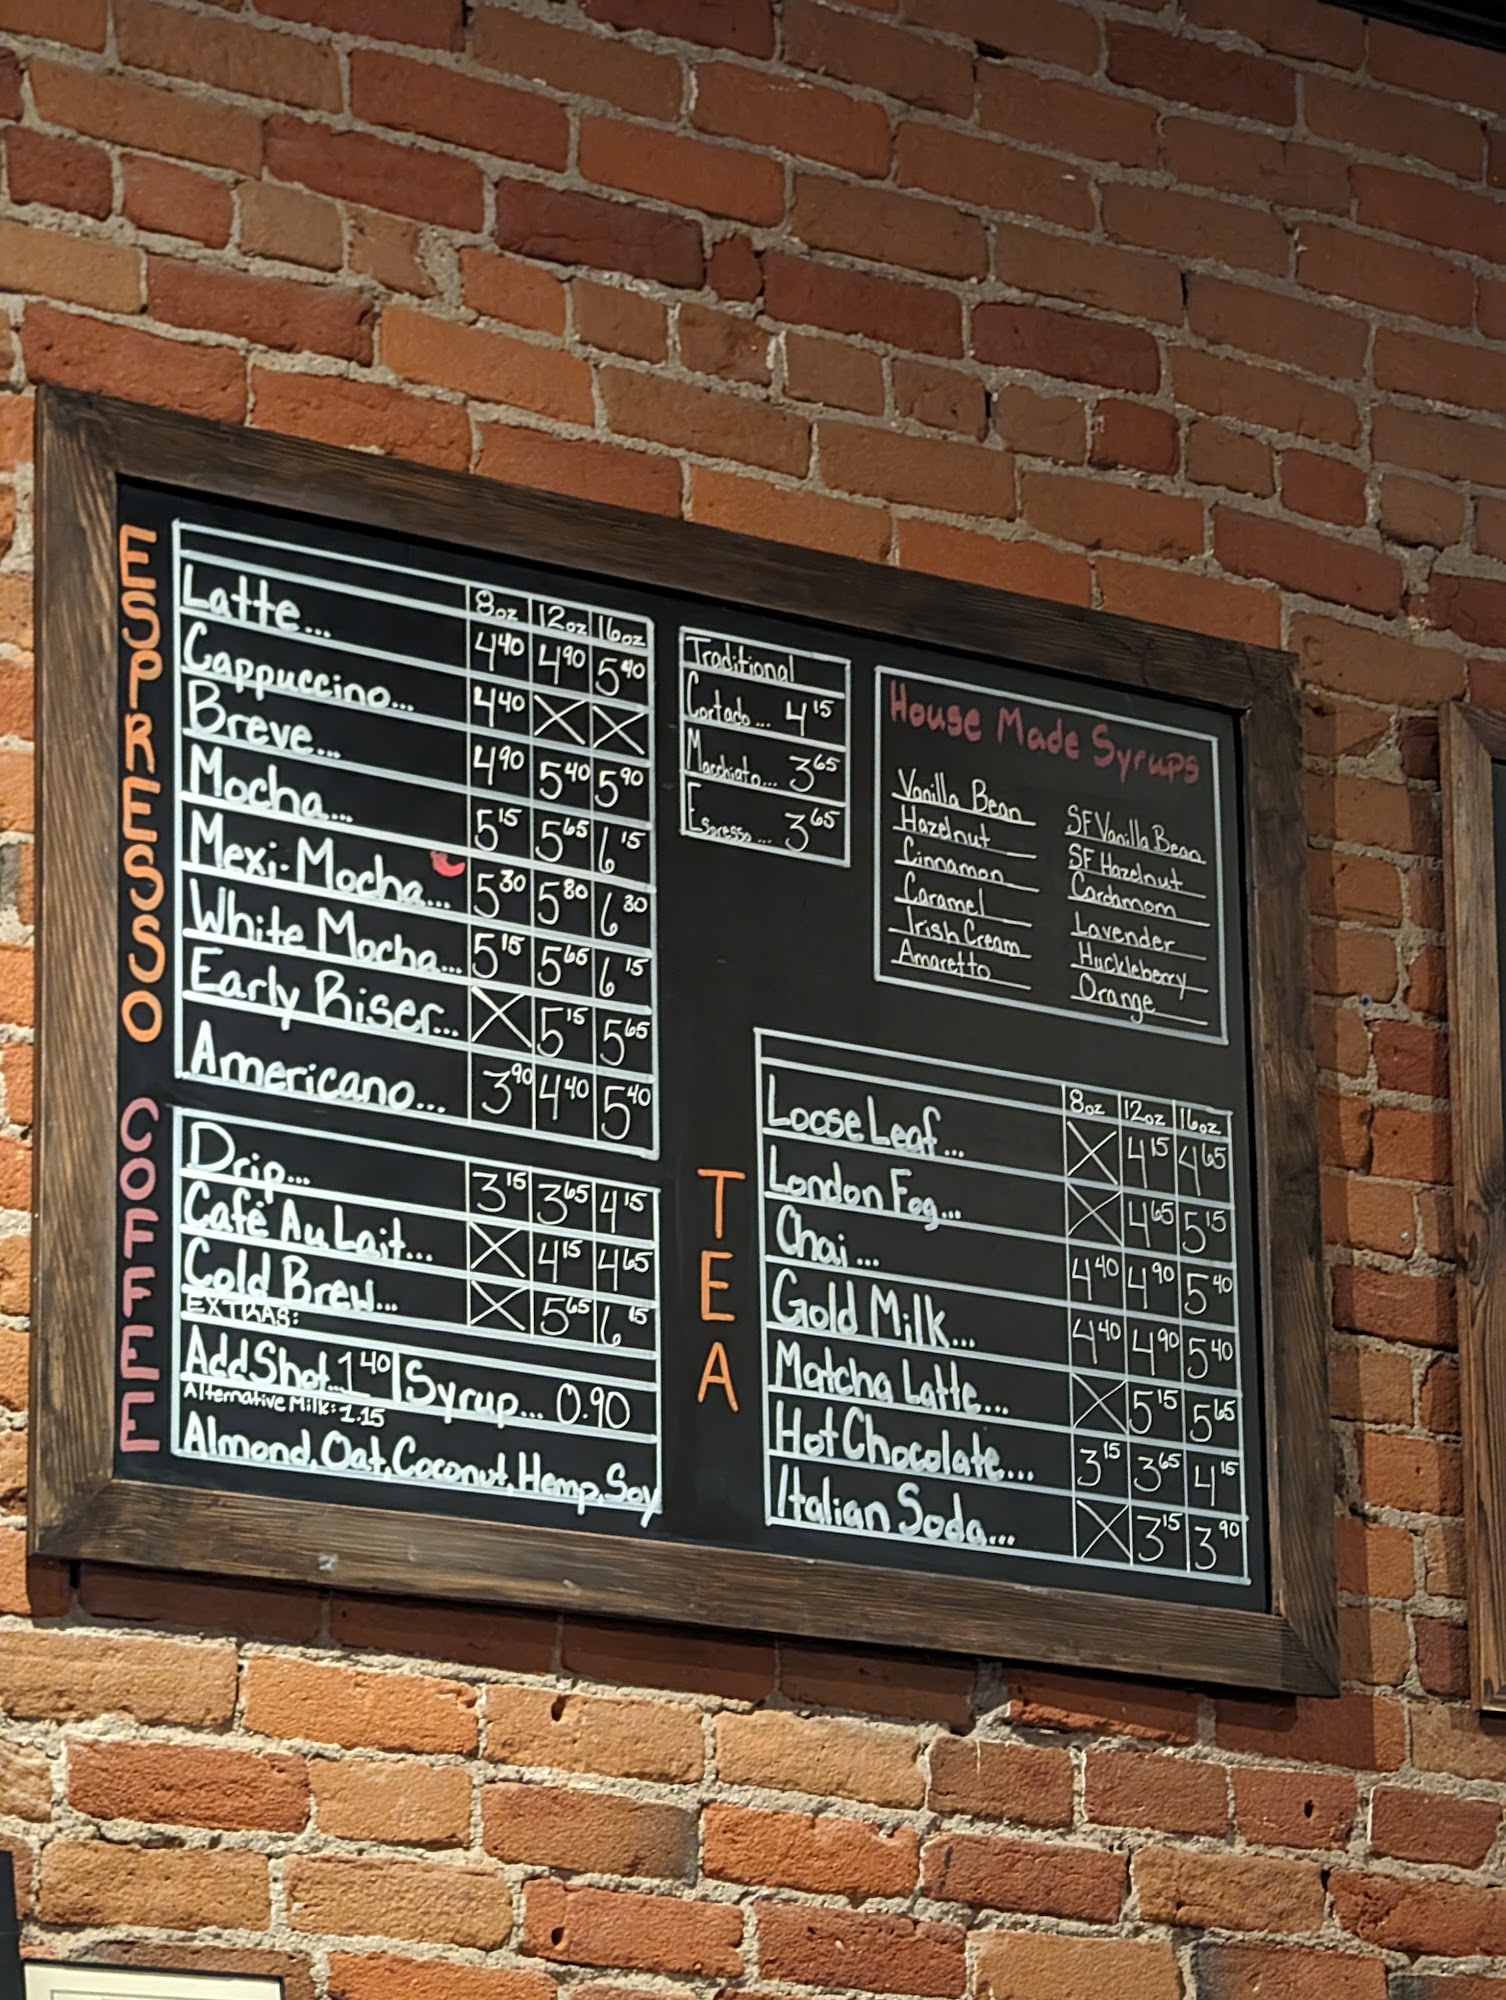 ESPRESSO
8oz 12oz 16oz
Latte... 4.40 4.90 5.40
Cappuccino... 4.40 X X
Breve... 4.90 5.40 5.90
Mocha... 5.15 5.65 6.15
Mexi-Mocha... 5.30 5.80 6.30
White Mocha... 5.15 5.65 6.15
Early Riser... X 5.15 5.65
Americano... 3.90 4.40 5.40
COFFEE
Drip... 3.15 3.65 4.15
Café Au Lait... X 4.15 4.65
Cold Brew... X 5.65 6.15
EXTRAS:
Add Shot...1.40 Syrup... 0.90
Alternative Milk: 1.15
Almond, Oat, Coconut, Hemp, Soy
Traditional
Cortado... 4.15
Macchiato... 3.65
Espresso... 3.65
House Made Syrups
Vanilla Bean
Hazelnut
Cinnamon
Caramel
Irish Cream
Amaretto
SF Vanilla Bean
SF Hazelnut
Cardamom
Lavender
Huckleberry
Orange
TEA
8oz 12oz 16oz
Loose Leaf... X 4.15 4.65
London Fog... X 4.65 5.15
Chai... 4.40 4.90 5.40
Gold Milk... 4.40 4.90 5.40
Matcha Latte... X 5.15 5.65
Hot Chocolate... 3.15 3.65 4.15
Italian Soda... X 3.15 3.90